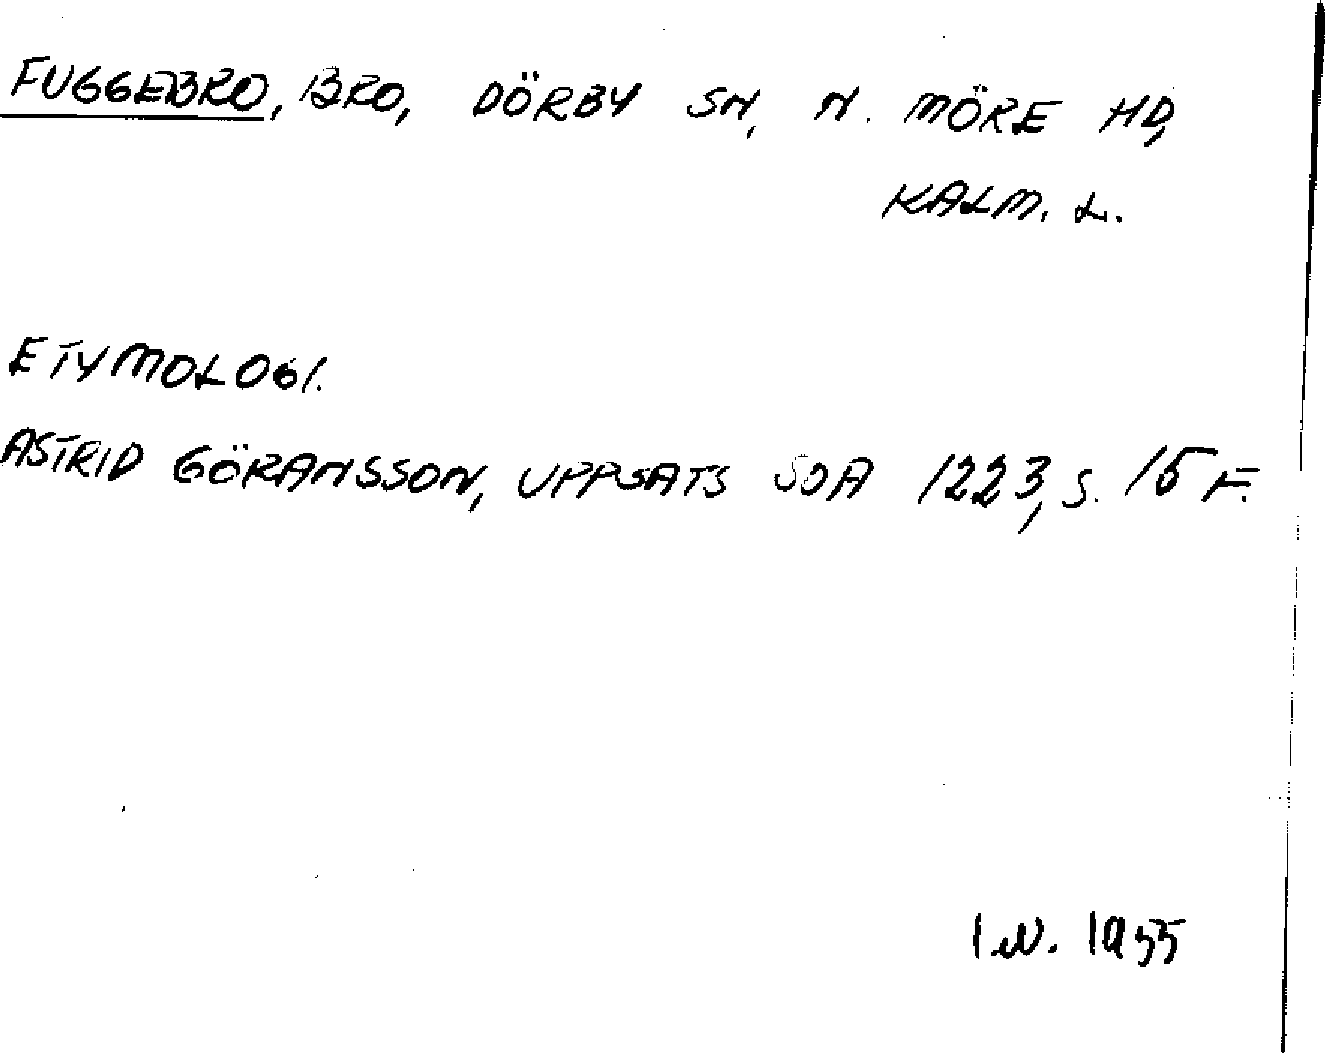 FUGGEBRO, BRO, DÖRBY SN, N. MÖRE HD,
KALM. L.
ETYMOLOGI.
ASTRID GÖRANSSON, UPPSATS SOA 1223, S. 15 F.
I.W. 1955